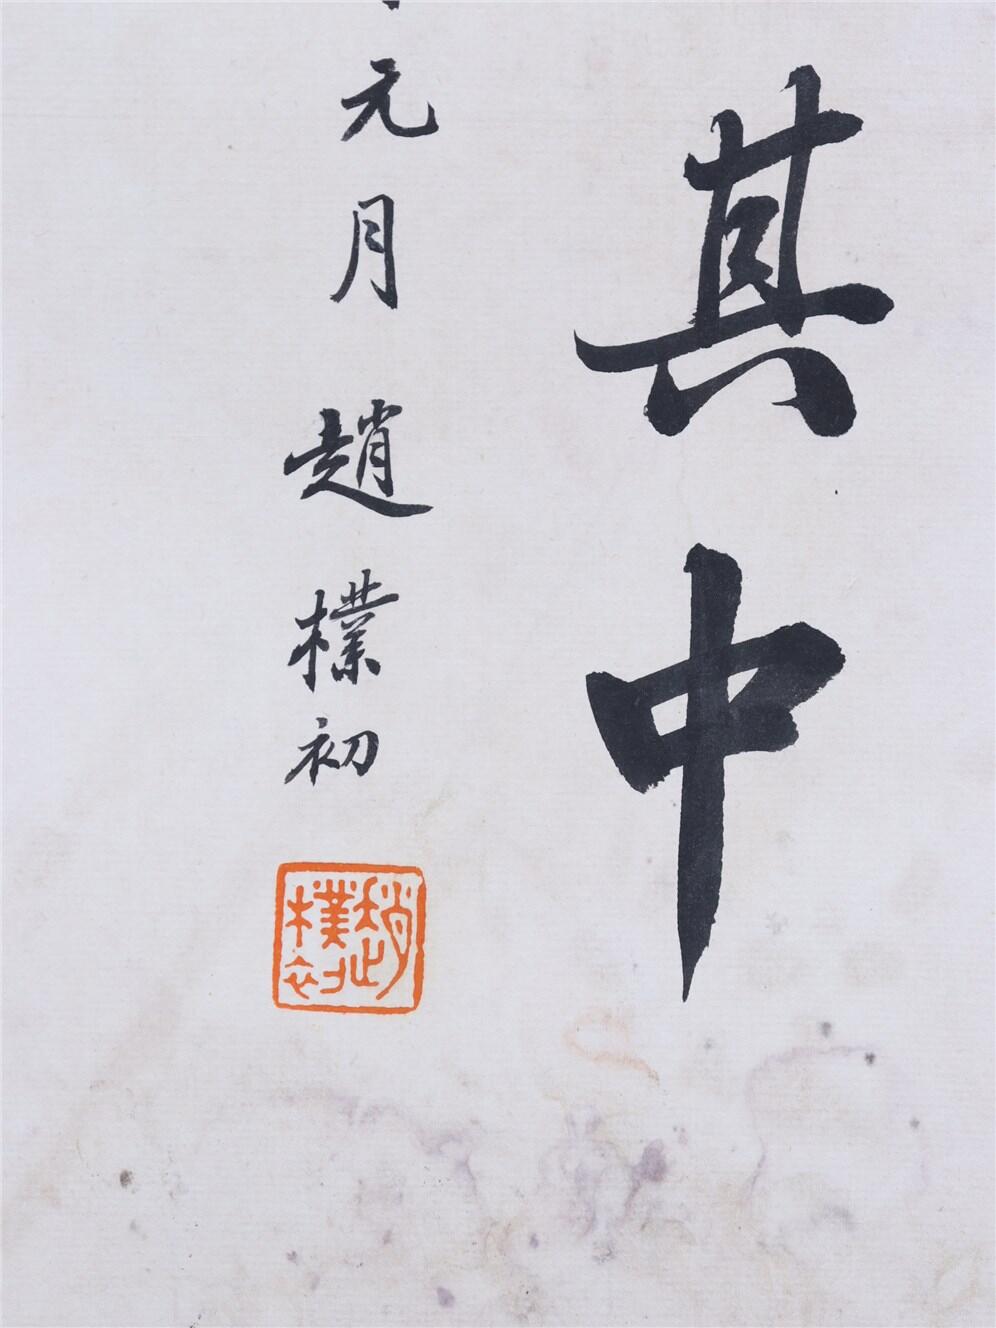 其中
元月趙樸初
趙樸初